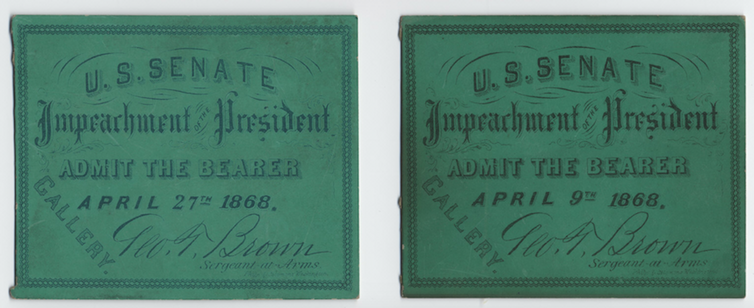 U.S. SENATE
Impeachment OF THE President
ADMIT THE BEARER
APRIL 27TH 1868.
GALLERY.
Geo. T. Brown
Sergeant-at-Arms
U.S. SENATE
Impeachment OF THE President
ADMIT THE BEARER
APRIL 9TH 1868.
GALLERY.
Geo. T. Brown
Sergeant-at-Arms